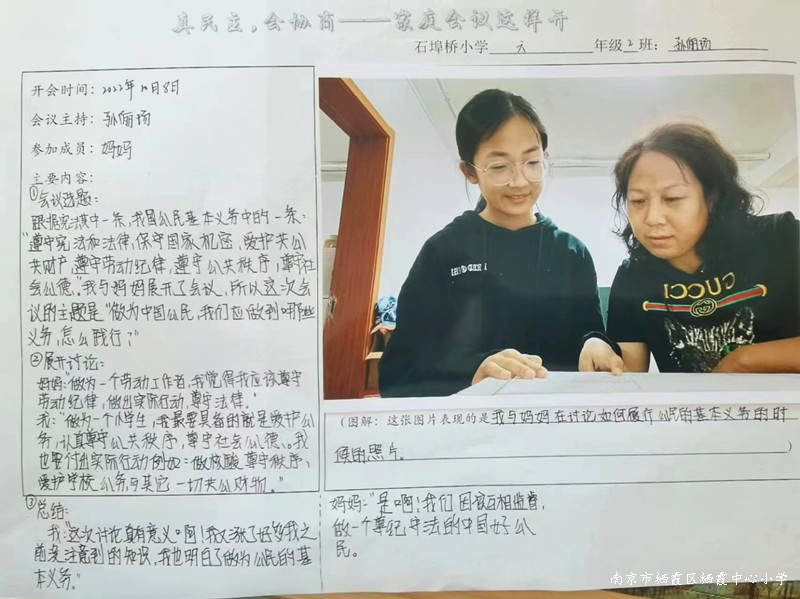 真民主,会协商——家庭会议这样开
石埠桥小学 六 年级 2 班:
开会时间:2022年10月8日
会议主持:
参加成员:妈妈
主要内容:
①会议选题:
跟据宪法其中一条,我国公民基本义务中的一条:
"遵守宪法和法律,保守国家机密,爱护共公
共财产,遵守劳动纪律,遵守公共秩序,尊守社
会公德。"我与妈妈展开了会议,所以这次会
议的主题是"做为中国公民,我们应做到哪些
义务,怎么践行?"
②展开讨论:
妈妈:"做为一个劳动工作者,我觉得我应该尊守
劳动纪律,做出实际行动,尊守法律。"
我:"做为一个小学生,我最要具备的就是爱护公
务,认真尊守公共秩序,尊守社会公德、。我
也要付出实际行动例如:做核酸尊守秩序,
爱护学校公务与其它一切共公财物。"
③总结:
我:"这次讨论真有意义。啊!我又涨了好多我之
前没注意到的知识,我也明白了做为公民的基
本义务。"
GUCCI
(图解:这张图片表现的是我与妈妈在讨论如何履行公民的基本义务的时
候的照片。)
妈妈:"是啊!我们因该互相监督,
做一个尊纪守法的中国好公
民。
南京市栖霞区栖霞中心小学